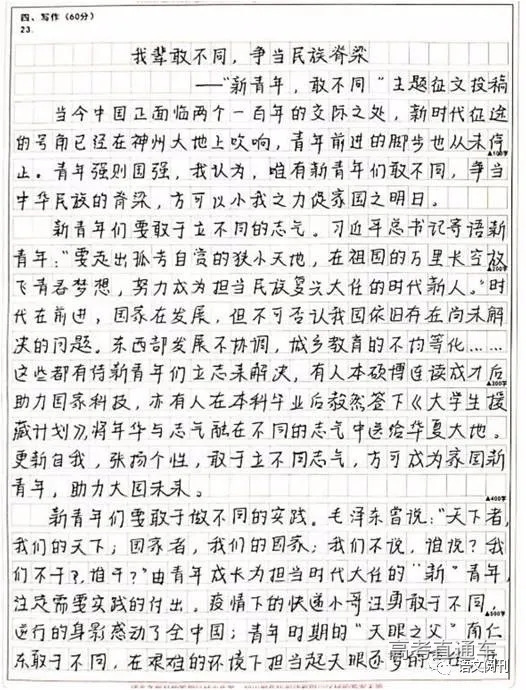 四、写作（60分）
23.
我辈敢不同，争当民族脊梁
——“新青年，敢不同”主题征文投稿
当今中国正面临两个一百年的交际之处，新时代征途
的号角已经在神州大地上吹响，青年前进的脚步也从未停
▲100字
止。青年强则国强，我认为，唯有新青年们敢不同，争当
中华民族的脊梁，方可以小我之力促家国之明日。
新青年们要敢于立不同的志气。习近平总书记寄语新
青年：“要走出孤芳自赏的狭小天地，在祖国的万里长空放
▲200字
飞青春梦想，努力成为担当民族复兴大任的时代新人。”时
代在前进，国家在发展，但不可否认我国依旧存在尚未解
决的问题。东西部发展不协调，城乡教育的不均等化……
▲300字
这些都有待新青年们立志来解决，有人本硕博连读成才后
助力国家科技，亦有人在本科毕业后毅然签下《大学生援
藏计划》，将年华与志气融在不同的志气中送给华夏大地。
更新自我，张扬个性，敢于立不同志气，方可成为家国新
青年，助力大国未来。
▲400字
新青年们要敢于做不同的实践。毛泽东曾说：“天下者，
我们的天下；国家者，我们的国家；我们不说，谁说？我
们不干？，谁干？”由青年成长为担当时代大任的“新”青年，
注定需要实践的付出。疫情下的快递小哥汪勇敢于不同，
▲500字
逆行的身影感动了全中国；青年时期的“天眼之父”南仁
东敢于不同，在艰难的环境下担当起天眼逐梦的
高考直通车
语文周刊